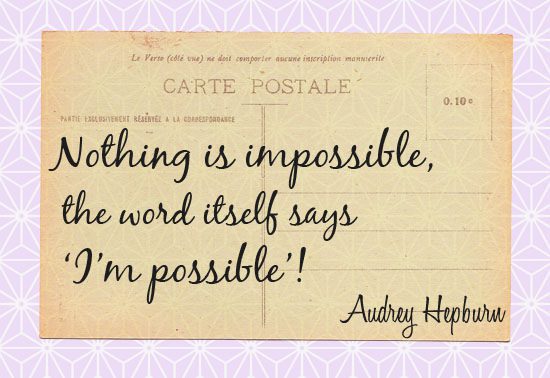 Le Verso (côté vue) ne doit comporter aucune inscription manuscrite
CARTE POSTALE
0.10 c
PARTIE EXCLUSIVEMENT RÉSERVÉE A LA CORRESPONDANCE
Nothing is impossible,
the word itself says
‘I’m possible’!
Audrey Hepburn